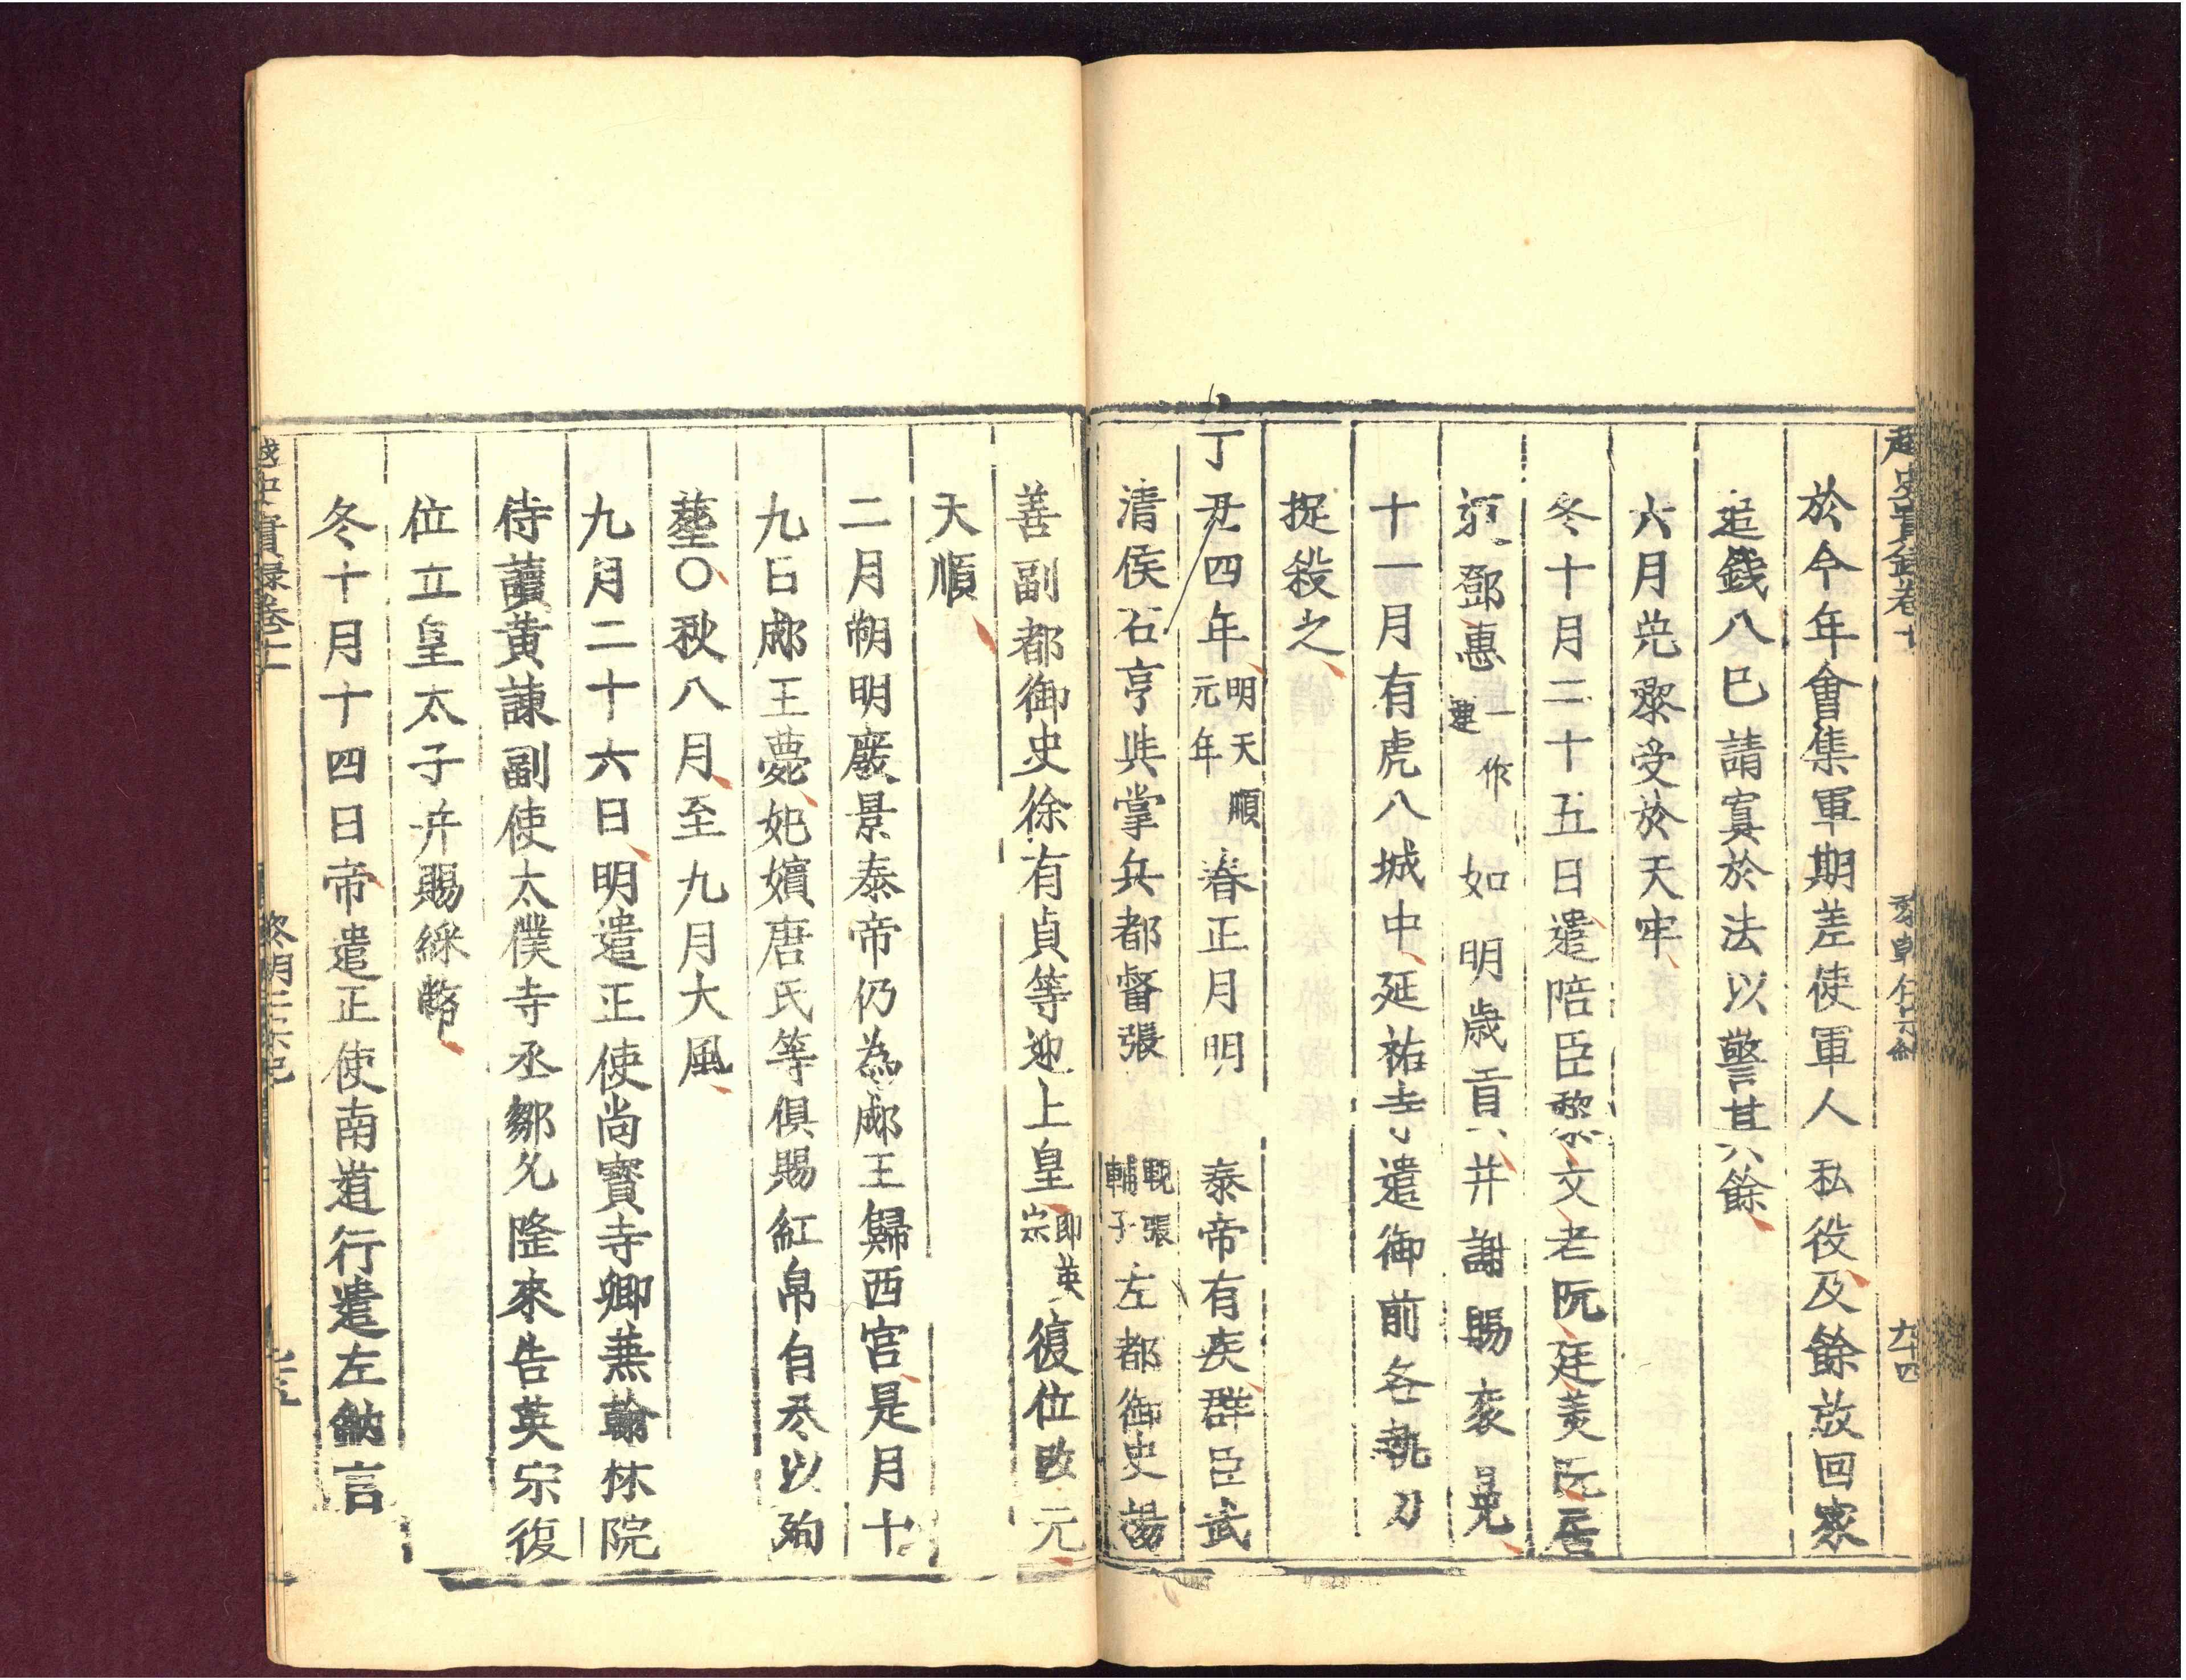 越史實錄卷十
於今年會集軍期差使軍人私役及餘放回家
追錢八巳請寘於法以警其餘
六月㐬黎受於天牢
冬十月二十五日遣陪臣黎文老阮廷美阮居
鄧惠一作建如明歲貢并謝賜衮冕
十一月有虎入城中延祐寺遣御前各執刀
捉殺之
丁丑四年明天順元年春正月明泰帝有疾群臣武
清侯石亨與掌兵都督張軏張輔子左都御史楊
善副都御史徐有貞等迎上皇即英宗復位改元
天順
二月朔明廢景泰帝仍為郕王歸西宮是月十
九日郕王薨妃嬪唐氏等俱賜紅帛自尽以殉
葬〇秋八月至九月大風
九月二十六日明遣正使尚寶寺卿兼翰林院
侍讀黃諫副使太僕寺丞鄒允隆來告英宗復
位立皇太子并賜綵幣
冬十月十四日帝遣正使南道行遣左納言
越史實錄卷十一